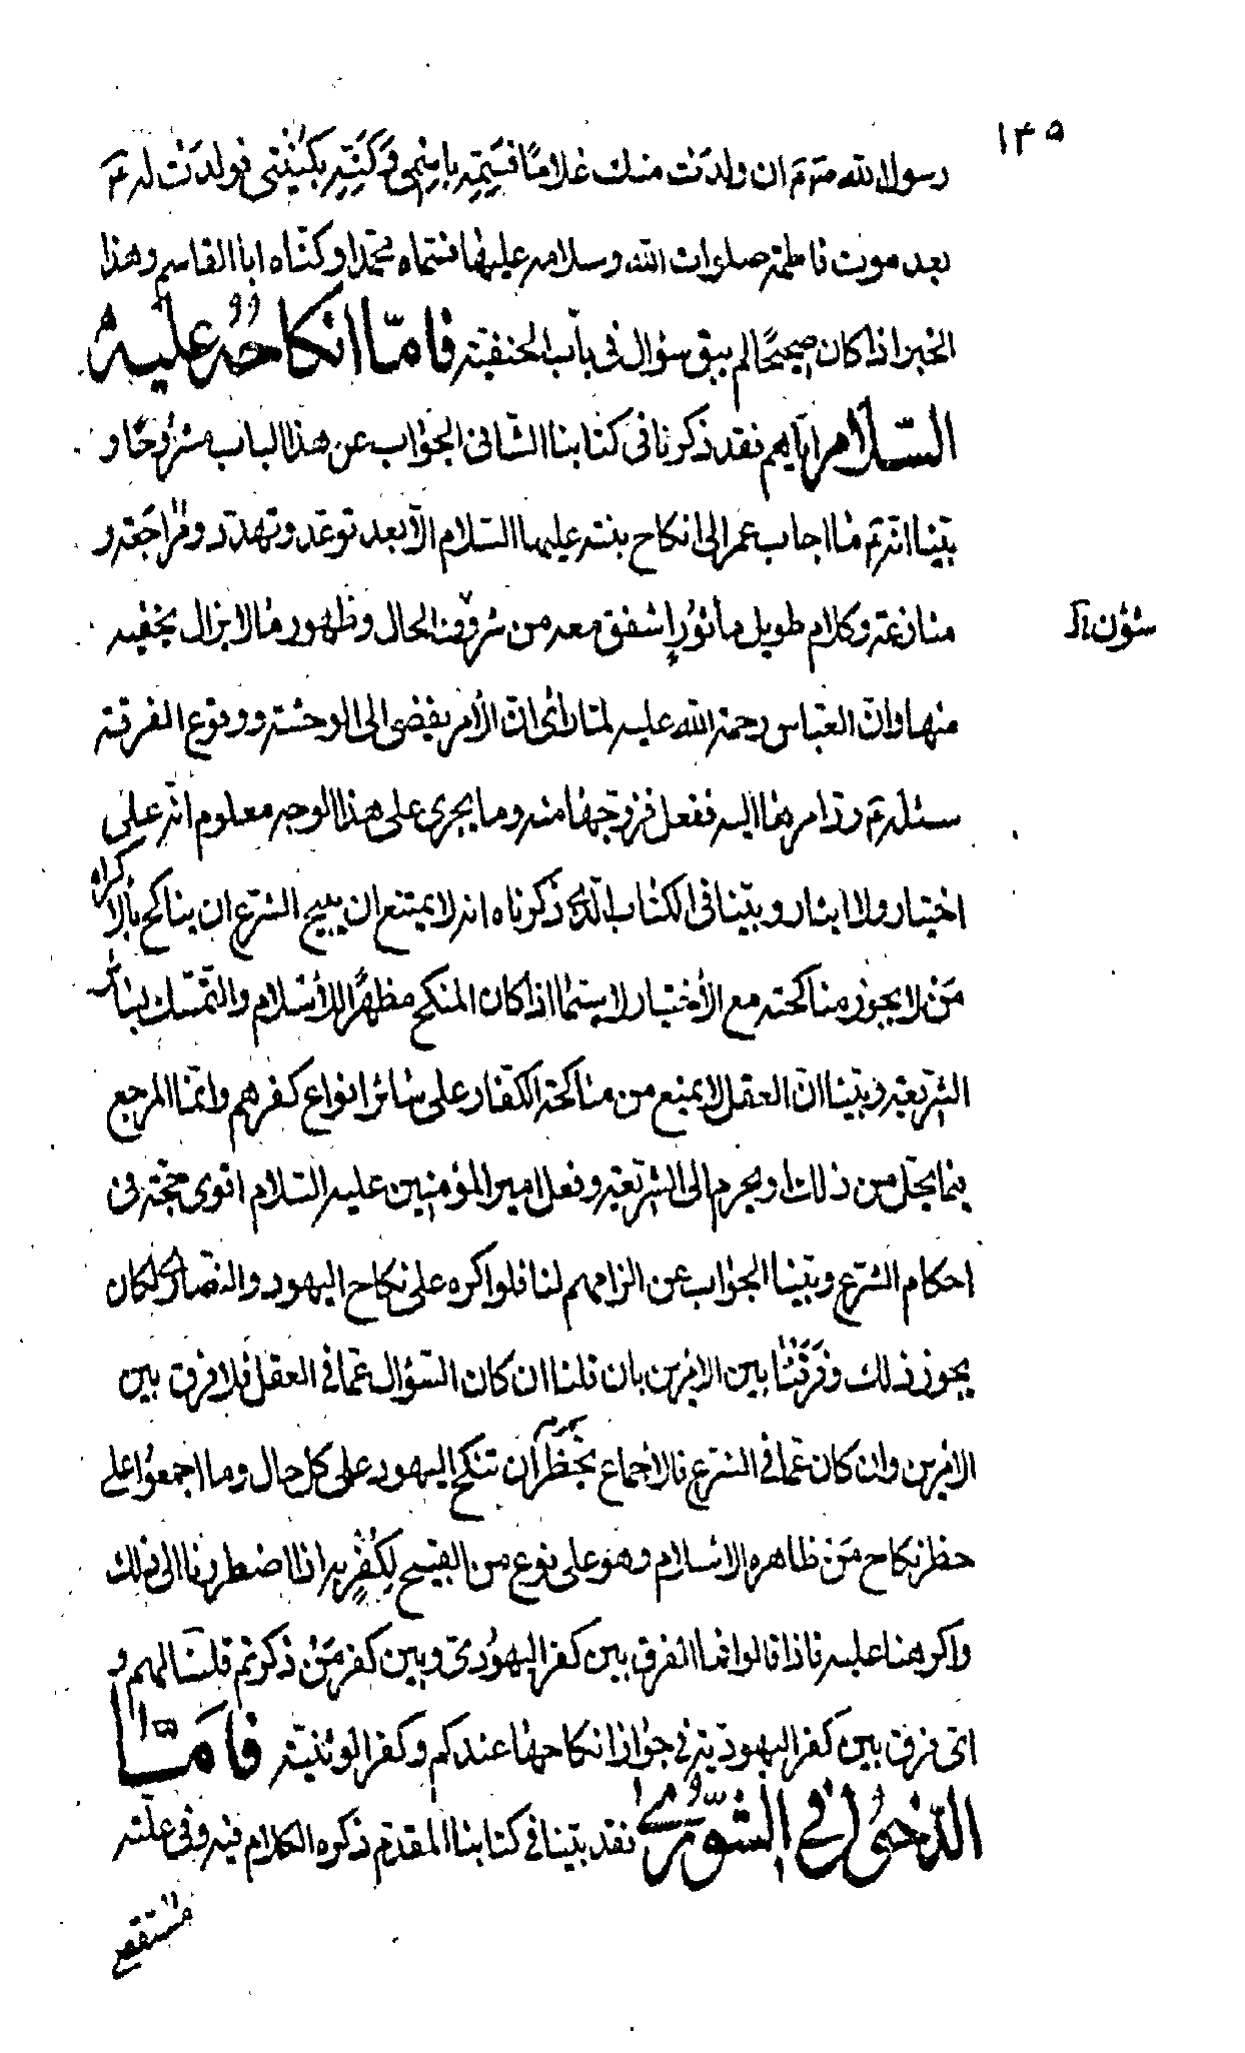 ١٣٥
رسول الله صم ان ولدَت منك غلامًا فسَمِّه بإسْمِى وَكَنِّه بكُنْيَتى فولدَت له عم
بعد موت فاطمة صلوات الله وسلامه عليها فسمّاه محمّدا وكنّاه ابا القاسم وهذا
الخبر اذا كان صحيحًا لم يبق سؤال فى باب الحنفيّة فامّا انكاحُهُ عليه
السّلام اياهم فقد ذكرنا فى كتابنا الشافى الجواب عن هذا الباب مشرُوحًا و
بيّنا انّه عم ما اجاب عمر الى انكاح بنته عليها السّلام الّا بعد توعّد وتهدّد ومُراجَعة و
منازعة وكلام طويل مأثُور اشفق معه من شروف الحال وظهور ما لا يزال يخفيه
شؤن اك
منها وانّ العبّاس رحمة الله عليه لمّا رأى انّ الأمر يفضى الى الوحشة ووقوع الفرقة
سئله عم ردّ امرها اليه ففعل فزوّجها منه وما يجرى على هذا الوجه معلوم انّه على
اختيار ولا ايثار وبيّنا فى الكتاب الّذى ذكرناه انه لا يمتنع ان يبيح الشرع ان يناكح بالاكراه
مَنْ لا يجوز مناكحته مع الأختيار لا سيّما اذا كان المنكح مظهرًا للأسْلام والتّمسّك بسائر
الشّريعة وبيّنا انّ العقل لا يمنع من مناكحة الكفّار على سائر انواع كفرهم وانّما المرجع
فيما يحلّ من ذلك او يحرم الى الشّريعة وفعل امير المؤمنين عليه السّلام اقوى حجّة فى
احكام الشّرع وبيّنا الجواب عن الزامهم لنا فلو اكره على نكاح اليهود والنّصارى لكان
يجوز ذلك وَفَرَّقْنَا بين الامْرين بان قلنا ان كان السّؤال عمّا فى العقل فلا فرق بين
الامْرين وان كان عمّا فى الشّرع فالاجماع يحظر ان تنكح اليهود على كل حال وما اجمعُوا على
حظر نكاح مَنْ ظاهره الاسْلام وهو على نوع من القبيح لِكُفْرٍ به اذا اضطررنا الى ذلك
واكرهنا عليه فاذا قالوا فما الفرق بين كفر اليهُودىّ وبين كفر مَنْ ذكرتم قلنا لهم و
اىّ فرق بين كفر اليهوديّة فى جواز انكاحها عندكم وكفر الوثنيّة فامّا
الدّخول فى الشّورى فقد بيّنا فى كتابنا المقدّم ذكره الكلام فيه وفى علّته
مستقصى